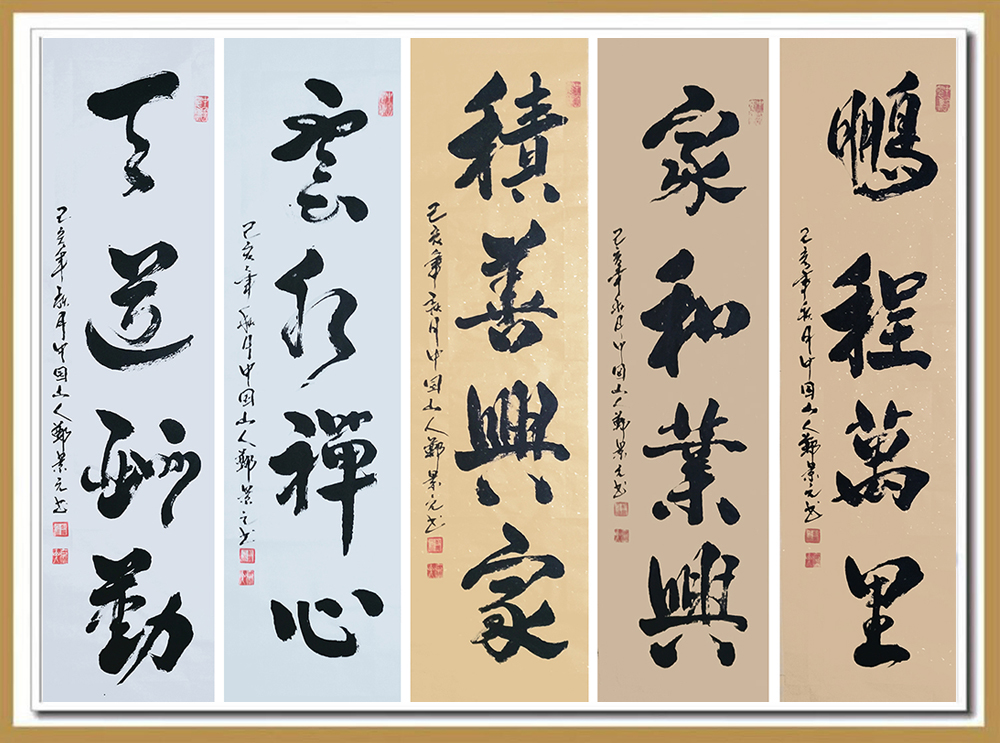 鵬程萬里
己亥年秋月中国山人鄭景元书
家和業興
己亥年秋月中国山人鄭景元书
積善興家
己亥年秋月中国山人鄭景元书
雲水禪心
己亥年秋月中国山人鄭景元书
天道酬勤
己亥年秋月中国山人鄭景元书